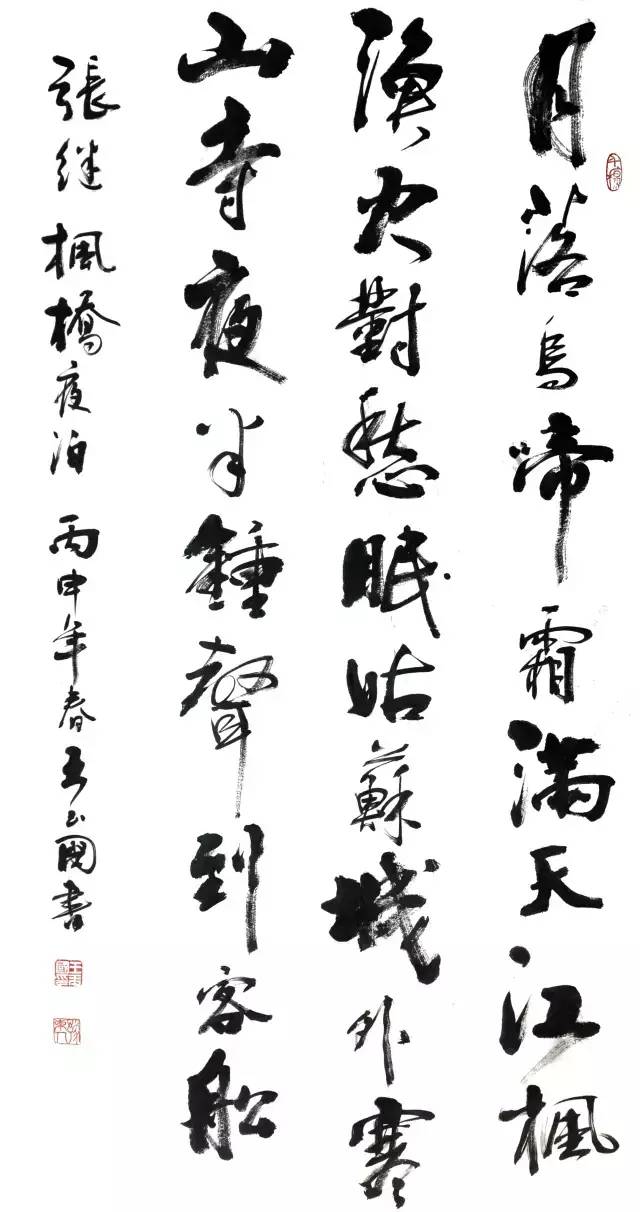 月落烏啼霜滿天江楓
漁火對愁眠姑蘇城外寒
山寺夜半鍾聲到客船
張継楓橋夜泊 丙申年春王國書